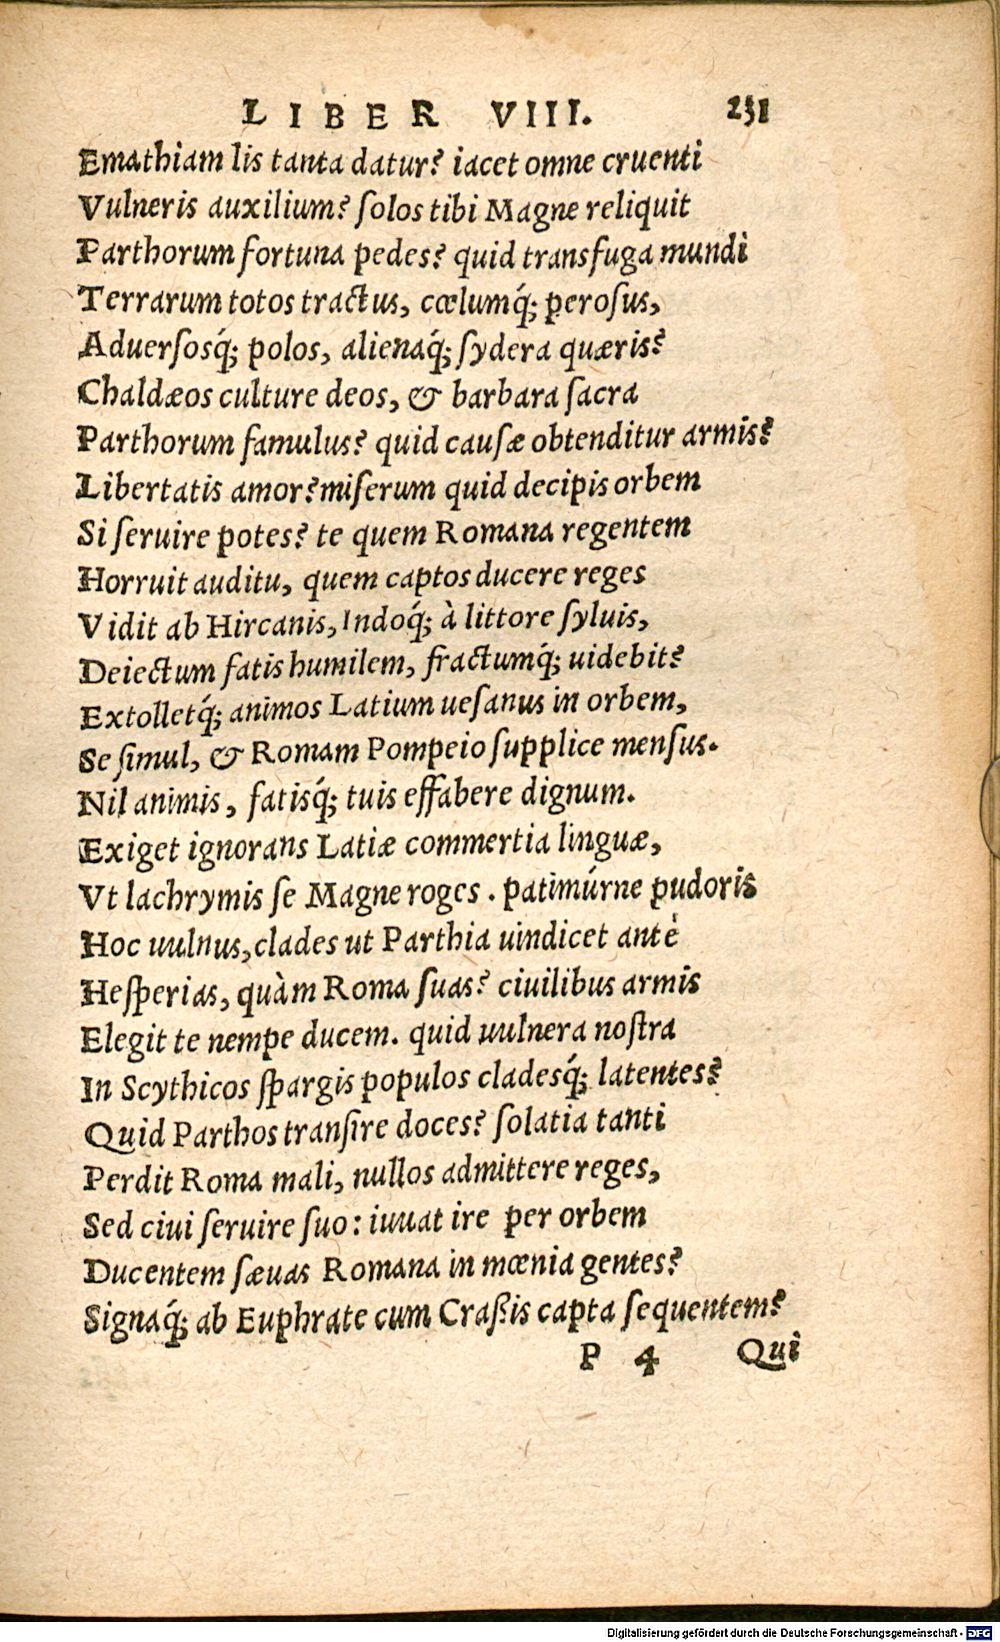 LIBER VIII. 231
Emathiam lis tanta datur? iacet omne cruenti
Vulneris auxilium? ſolos tibi Magne reliquit
Parthorum fortuna pedes? quid transfuga mundi
Terrarum totos tractus, cœlumq́; peroſus,
Aduerſosq́; polos, alienaq́; ſydera quæris?
Chaldæos culture deos, & barbara ſacra
Parthorum famulus? quid cauſæ obtenditur armis?
Libertatis amor? miſerum quid decipis orbem
Si ſeruire potes? te quem Romana regentem
Horruit auditu, quem captos ducere reges
Vidit ab Hircanis, Indoq́; à littore ſyluis,
Deiectum fatis humilem, fractumq́; uidebit?
Extolletq́; animos Latium ueſanus in orbem,
Se ſimul, & Romam Pompeio ſupplice menſus.
Nil animis, fatisq́; tuis effabere dignum.
Exiget ignorans Latiæ commertia linguæ,
Vt lachrymis ſe Magne roges. patimúrne pudoris
Hoc uulnus, clades ut Parthia uindicet antè
Heſperias, quàm Roma ſuas? ciuilibus armis
Elegit te nempe ducem. quid uulnera noſtra
In Scythicos ſpargis populos cladesq́; latentes?
Quid Parthos tranſire doces? ſolatia tanti
Perdit Roma mali, nullos admittere reges,
Sed ciui ſeruire ſuo: iuuat ire per orbem
Ducentem ſæuas Romana in mœnia gentes?
Signaq́; ab Euphrate cum Craßis capta ſequentem?
P 4 Qui
Digitalisierung gefördert durch die Deutsche Forschungsgemeinschaft - DFG